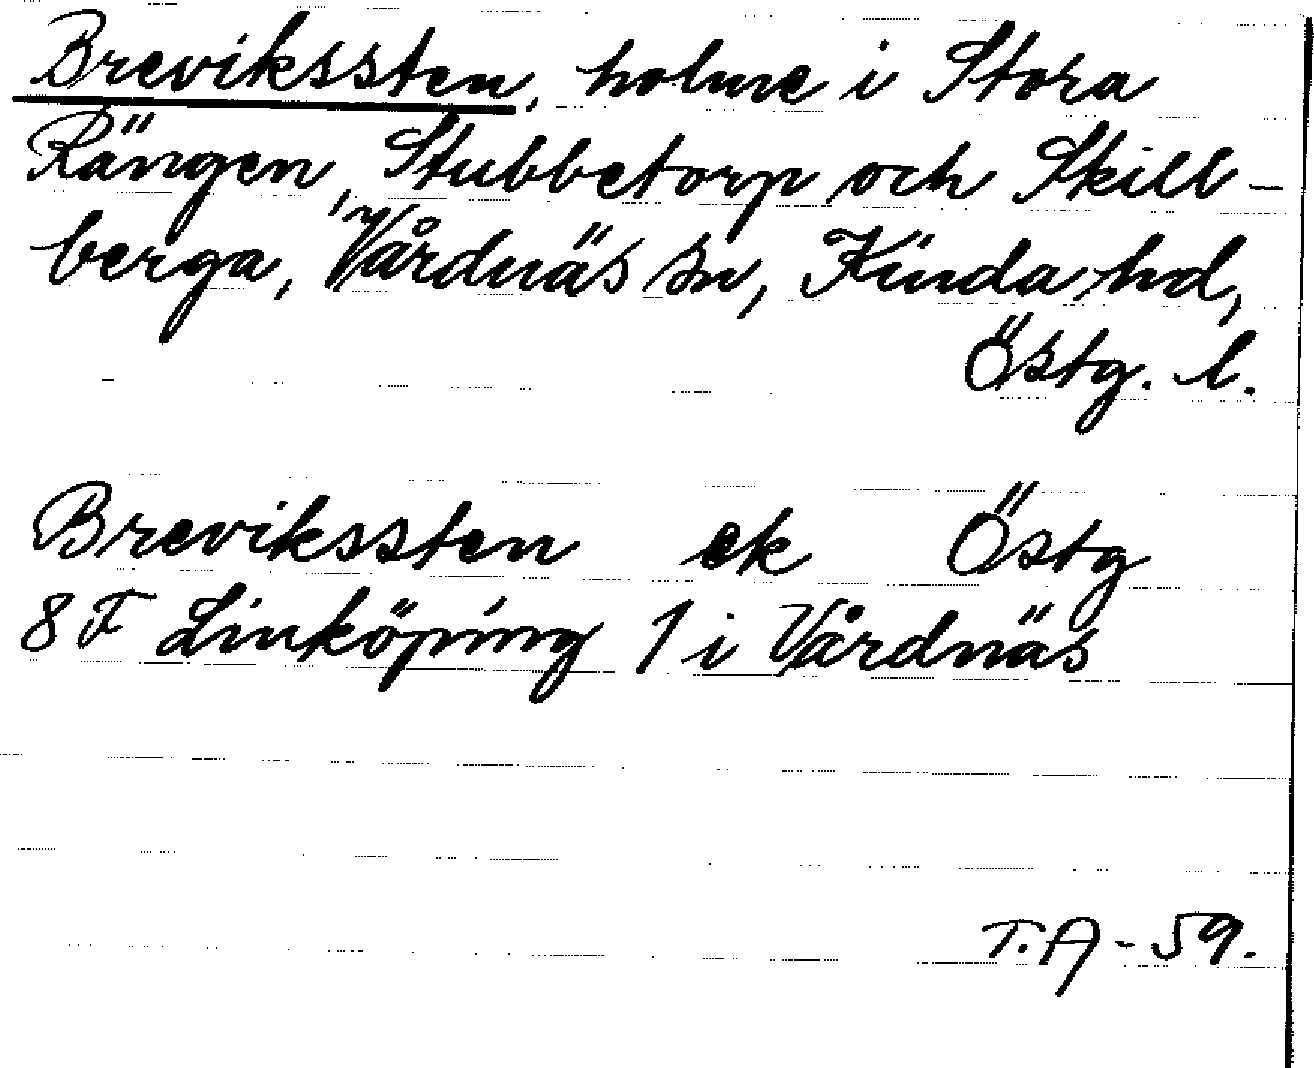 Brevikssten, holme i Stora
Rängen, Stubbetorp och Skill-
berga, Vårdnäs sn, Kinda hd,
Östg. l.
Brevikssten ek Östg
8 F Linköping 1 i Vårdnäs
T.A - 59.